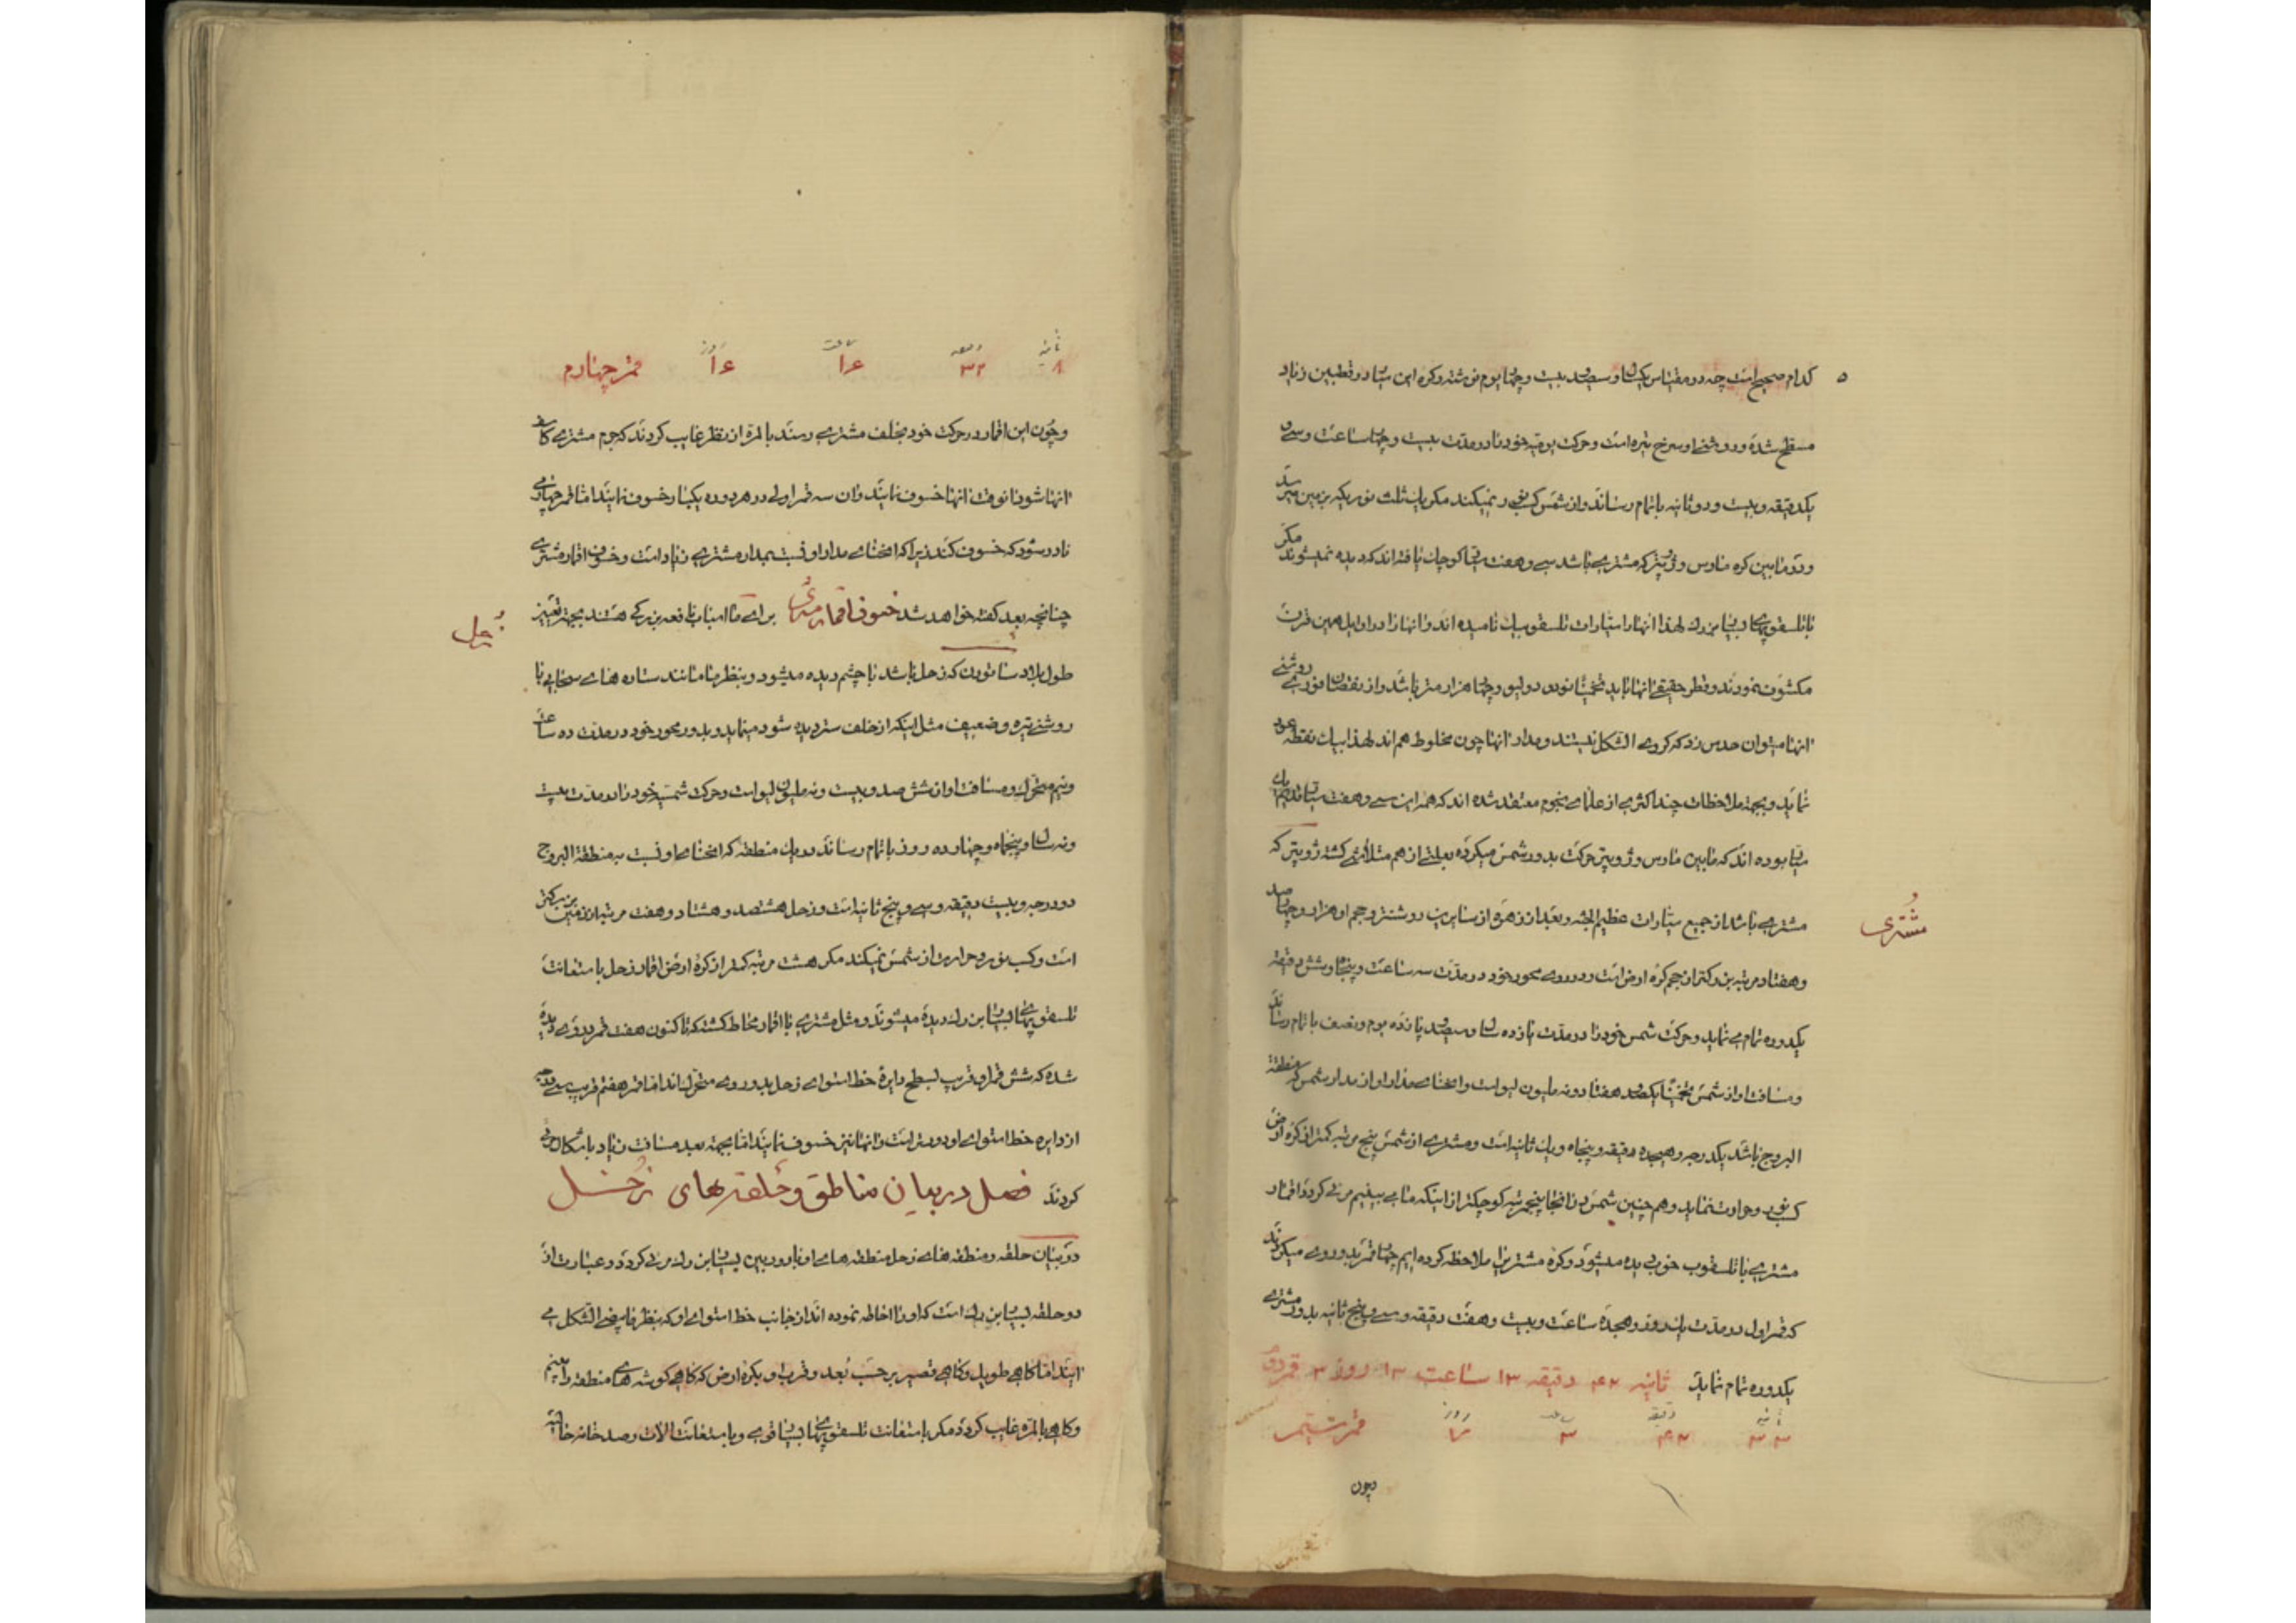 کدام صحیح است چه در مقیاس یکسال و سیصد و بیست و چهار یوم نوشته و کره این سیاره در قطبین زیاد
مسطح شده و روشنی او سرخ تیره است و حرکت یومیه خود را در مدت بیست و چهار ساعت و سی و
یکدقیقه و بیست و دو ثانیه باتمام رساند و از شمس کسب نور نمیکند مگر یک ثلث نوریکه بزمین میرسد
و در مابین کره مارس و ژوپیتر که مشتری باشد سی و هفت سیاره کوچک یافته اند که دیده نمیشوند مگر
با تلسقوپهای بسیار بزرگ لهذا آنها را سیارات تلسقوپیک نامیده اند و آنها را در اوایل همین قرن
مکشوف نمودند و قطر حقیقی آنها باید تخمینا نود و دو لیو و چهار هزار متر باشد و از نقصان نور و روشنی
آنها میتوان حدس زد که کروی الشکل نیستند و مدار آنها چون مخلوط هم اند لهذا بیک نقطه عود
نمایند و بجهة ملاحظات چند اکثری از علمای نجوم معتقد شده اند که همه این سی و هفت سیاره
سیاره بوده اند که مابین مارس و ژوپیتر حرکت بدور شمس میکرده بعلتی از هم متلاشی گشته ژوپیتر که
مشتری باشد از جمیع سیارات عظیم الجثه و بعد از زهره از سایرین روشنتر و حجم او هزار و چهارصد
و هفتاد مرتبه بزرکتر از حجم کره ارض است و در روی محور خود در مدت سه ساعت و پنجاه و شش دقیقه
یکدوره تمام می نماید و حرکت شمس خود را در مدت یازده سال و سیصد و پانزده یوم و نصف باتمام رساند
و مسافت او از شمس تخمینا یکصد و هفتاد و نه ملیون لیو است و انحنای مدار او از مدار شمس که منطقة
البروج باشد یکدرجه و هیجده دقیقه و پنجاه و یک ثانیه است و مشتری از شمس پنج مرتبه کمتر از کره ارض
کسب نور و حرارت نماید و همچنین شمس در آنجا پنج مرتبه کوچکتر از اینکه ما می بینیم مرئی کردد اقمار
مشتری با تلسقوب خوب دیده میشود و کره مشتری را ملاحظه کرده ایم چهار قمر بدور وی میکردند
که قمر اول در مدت یک روز و هجده ساعت و بیست و هفت دقیقه و سی و پنج ثانیه بدور مشتری
یکدوره تمام نماید ثانیه ۴۲ دقیقه ۱۳ ساعت ۱۳ روز ۳ قمر دوم
ثانیه دقیقه ساعت روز
۳۳ ۴۲ ۳ ۷ قمر سیم
چون
مشتری
ثانیه دقیقه ساعت روز
۸ ۳۲ ۱۶ ۱۶ قمر چهارم
و چون این اقمار در حرکت خود بخلف مشتری رسند بالمره از نظر غایب کردند که جرم مشتری کاسف
آنها شود آنوقت آنها خسوف نمایند و آن سه قمر اولی در هر دوره یکبار خسوف نمایند اما قمر چهارمی
نادر شود که خسوف کند زیرا که انحنای مدار او نسبت بمدار مشتری زیاد است و خسوف اقمار مشتری
چنانچه بعد گفته خواهد شد خسوف اقمار مشتری برای ما اسباب نافعه بزرکی هستند بجهة تعیین
طول بلاد ساتورن که زحل باشد با چشم دیده میشود و بنظر ما مانند ستاره های سحابی با
روشنی تیره و ضعیف مثل اینکه از خلف ستر دیده شود مینماید و بدور محور خود در مدت ده ساعت
و نیم متحرک و مسافت او از شش صد و بیست و نه ملیون لیو است و حرکت شمسیه خود را در مدت بیست
و نه سال و پنجاه و چهار ده روز باتمام رساند در یک منطقه که انحنای او نسبت به منطقة البروج
دو درجه و بیست دقیقه و سی و پنج ثانیه است و زحل هشتصد و هشتاد و هفت مرتبه از زمین بزرکتر
است و کسب نور و حرارت از شمس نمیکند مگر هشت مرتبه کمتر از کره ارض اقمار زحل باستعانت
تلسقوپهای بسیار بزرگ دیده میشوند و مثل مشتری با اقمار محاط کشته که تاکنون هفت قمر بدور وی دیده
شده که شش قمر او قریب بسطح دایرة خط استوای زحل بدور وی متحرک اند اما قمر هفتم قریب سی درجه
از دایره خط استوای او دورتر است و آنها نیز خسوف نمایند اما بجهة بعد مسافت زیاد باشکال مرئی
کردند فصل در بیان مناطق و حلقه های زحل
در بیان حلقه و منطقه های زحل منطقه های او با دوربین بسیار بزرگ مرئی کردد و عبارت از
دو حلقه بسیار بزرگ است که او را احاطه نموده اند از جانب خط استوای او که بنظر ما بیضی الشکل می
آیند اما کاهی طویل و کاهی قصیر بر حسب بُعد و قرب او بکره ارض که کاهی گوشه های منطقه را بینیم
و کاهی بالمره غایب کردد مگر باستعانت تلسقوپهای بسیار قوی و باستعانت الات رصد خانه
زحل